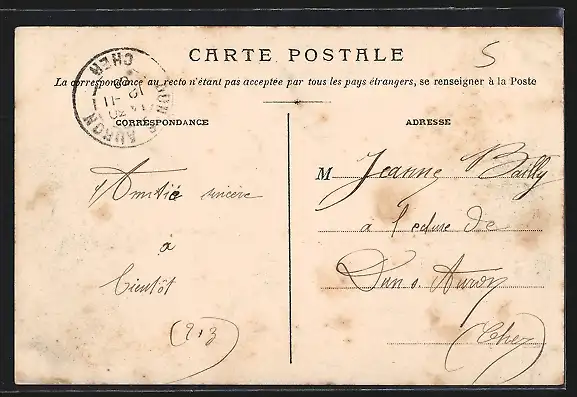 CARTE POSTALE
5
La correspondance au recto n'étant pas acceptée par tous les pays étrangers, se renseigner à la Poste
DUN S AURON
CHER
CORRESPONDANCE
Amitié sincère
a
bientôt
(213)
ADRESSE
M Jeanne Bailly
à l'eclue de
Dun s. Auron
(Cher)